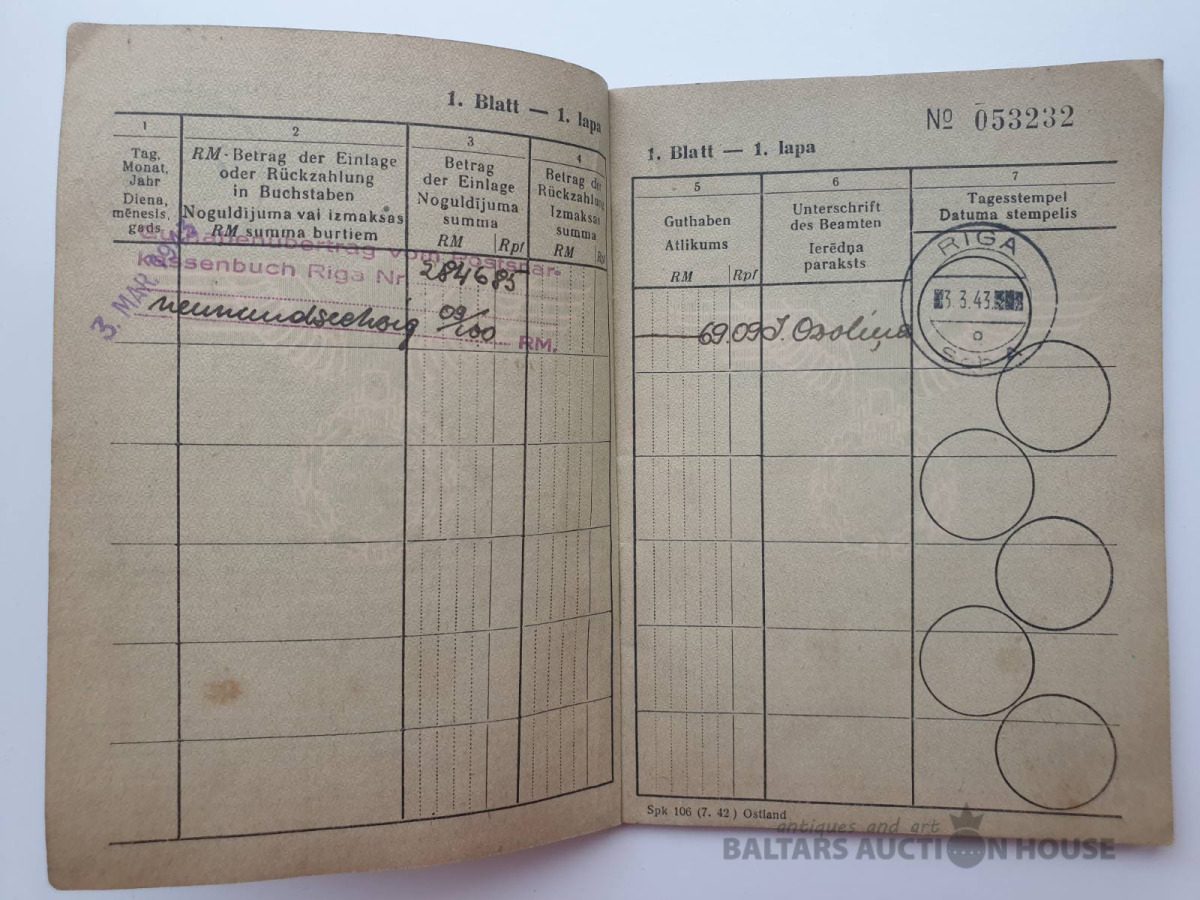 1. Blatt — 1. lapa
1
Tag,
Monat,
Jahr
Diena,
mēnesis,
gads
2
RM-Betrag der Einlage
oder Rückzahlung
in Buchstaben
Noguldījuma vai izmaksas
RM summa burtiem
3
Betrag
der Einlage
Noguldījuma
summa
RM Rpf
4
Betrag der
Rückzahlung
Izmaksas
summa
RM Rpf
3. MAR. 1943
Guthabenübertrag vom Postspar-
kassenbuch Riga Nr. 284685
neunundsechzig 09/100 RM.
№ 053232
1. Blatt — 1. lapa
5
Guthaben
Atlikums
RM Rpf
6
Unterschrift
des Beamten
Ierēdņa
paraksts
7
Tagesstempel
Datuma stempelis
69.09 J. Ozoliņa
RIGA
3.3.43
Spk 106 (7. 42) Ostland
antiques and art
BALTARS AUCTION HOUSE